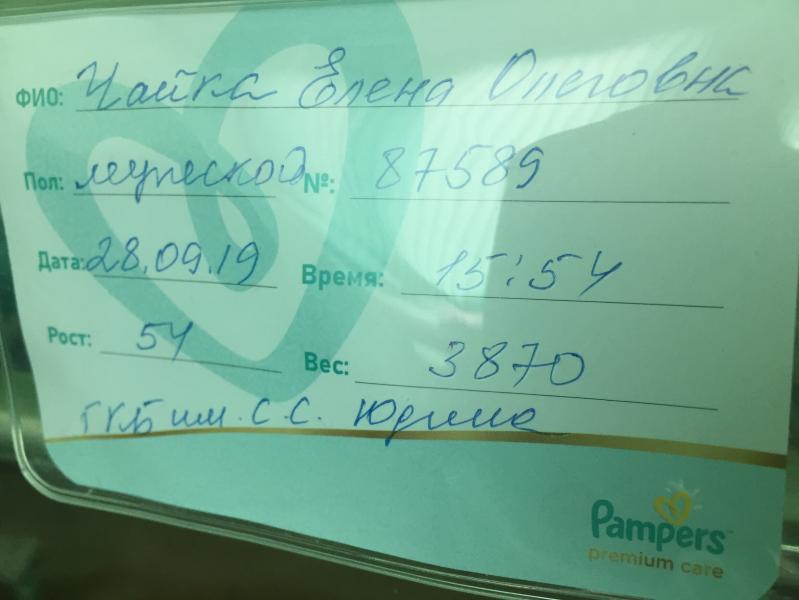 ФИО: Чайка Елена Олеговна
Пол: мужской №: 87589
Дата: 28.09.19 Время: 15:54
Рост: 54 Вес: 3870
ГКБ им. С.С. Юдина
Pampers
premium care